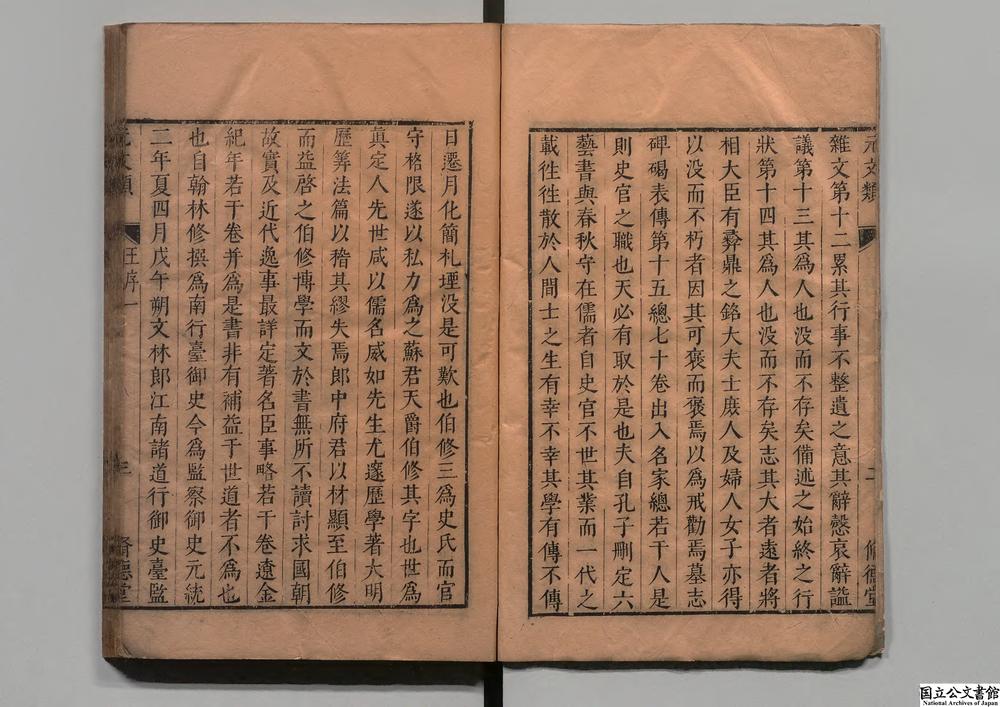 元文類 二 脩德堂
雜文第十二累其行事不整遺之意其辭慤哀辭謚
議第十三其為人也没而不存矣備述之始終之行
狀第十四其為人也没而不存矣志其大者遠者將
相大臣有彝鼎之銘大夫士庻人及婦人女子亦得
以没而不朽者因其可褒而褒焉以為戒勸焉墓志
碑碣表傳第十五總七十卷出入名家總若干人是
則史官之職也天必有取於是也夫自孔子刪定六
藝書與春秋守在儒者自史官不世其業而一代之
載徃徃散於人間士之生有幸不幸其學有傳不傳
日遷月化簡札堙没是可歎也伯修三為史氏而官
守格限遂以私力為之蘇君天爵伯修其字也世為
真定人先世咸以儒名威如先生尤邃歷學著大明
歷筭法篇以稽其繆失焉郎中府君以材顯至伯修
而益啓之伯修博學而文於書無所不讀討求國朝
故實及近代逸事最詳定著名臣事略若干卷遼金
紀年若干卷并為是書非有補益于世道者不為也
也自翰林修撰為南行臺御史今為監察御史元統
二年夏四月戊午朔文林郎江南諸道行御史臺監
元文類 王序一 三 脩德堂
国立公文書館
National Archives of Japan